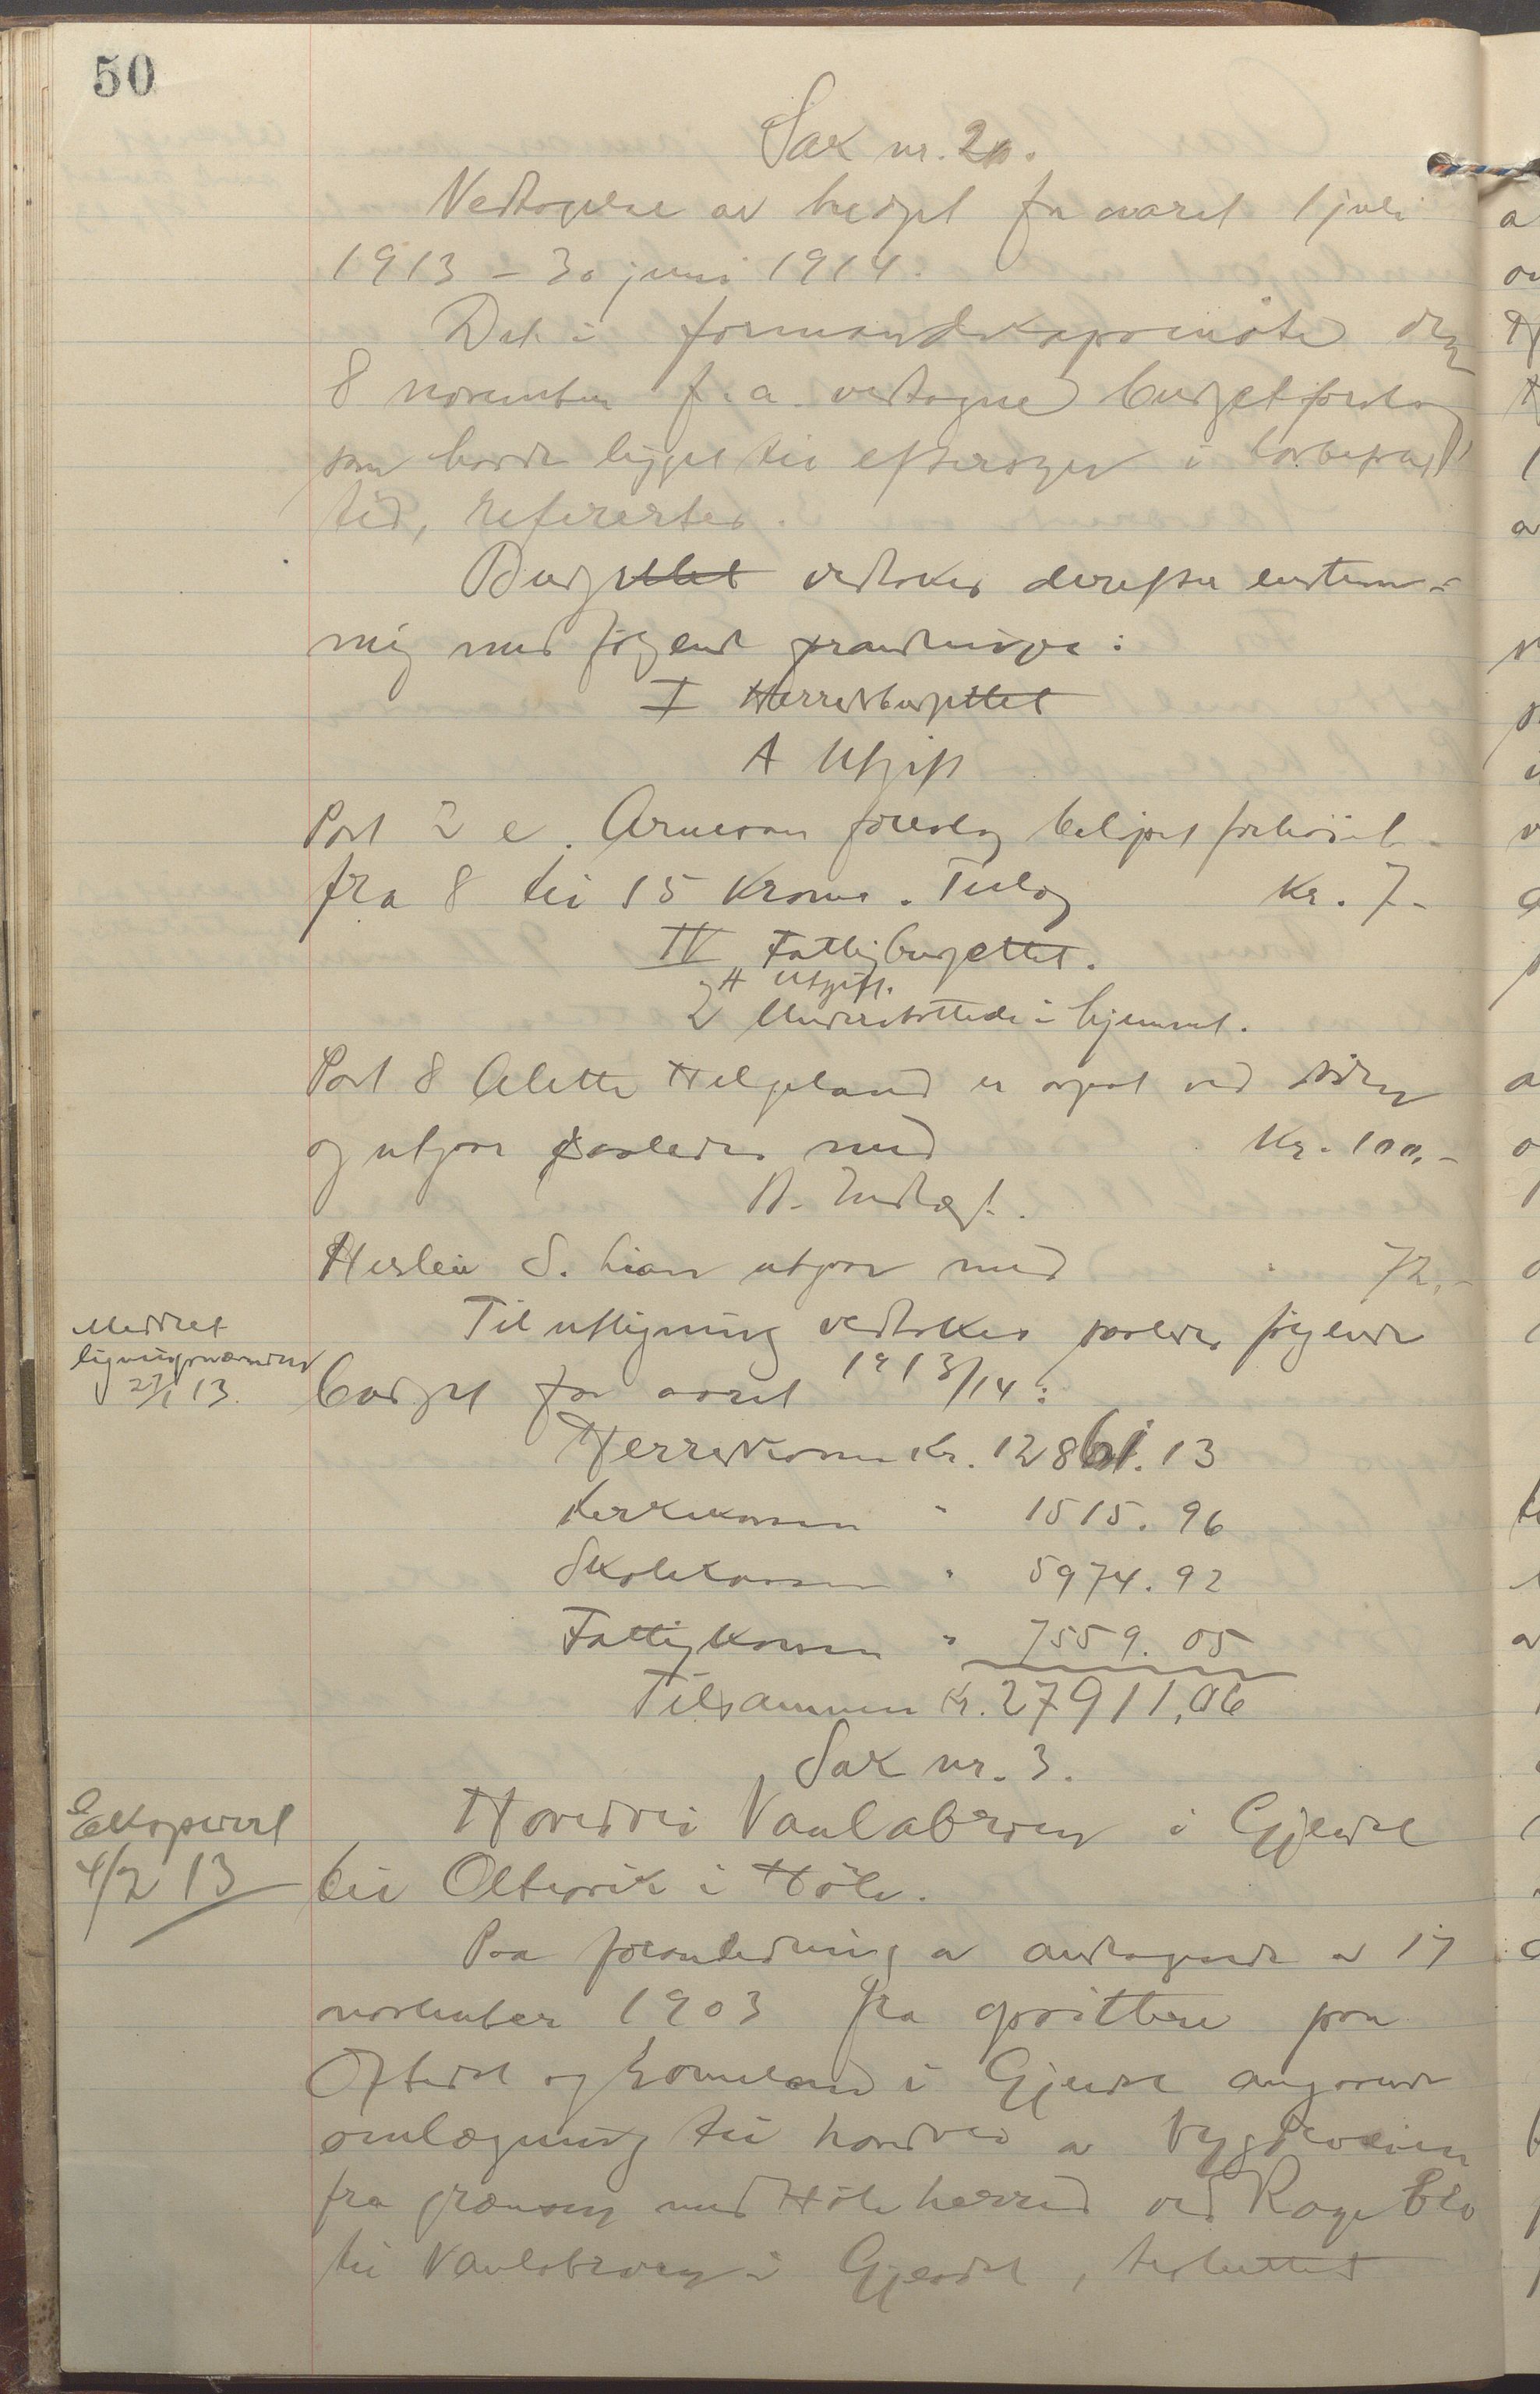 50
Sak nr. 2.
Vedtagelse av budget for aaret 1 juli
1913 – 30 juni 1914.
Det i formandskapsmøte den
8 november f.a. vedtagne budgetforslag
som havde ligget til eftersyn i lovbefalt
tid, referertes.
Budgettet vedtokes derefter enstem-
mig med følgende forandringer:
I Herredsbudgettet
A Utgift
Post 2 e. Arneson foreslog beløpet forhøiet
fra 8 til 15 kroner. Tillæg Kr. 7.-
IV Fattigbudgettet.
A Utgift.
2 Understøttede i hjemmet.
Post 8 Alette Helgeland er avgaat ved døden
og utgaar saaledes med Kr. 100,-
B. Indtægt.
Herlein S. Lian utgaar med " 72,-
Meddelt
ligningsnævnden
27/1 13.
Til utligning vedtokes saaledes følgende
budget for aaret 1913/14:
Herredskassen Kr. 12861.13
Kirkekassen " 1515.96
Skolekassen " 5974.92
Fattigkassen " 7559.05
Tilsammen Kr. 27911,06
Sak nr. 3.
Ekspedert
4/2 13
Hovedvei Vaulabroen i Gjesdal
til Oltesvik i Høle.
Paa foranledning av andragende av 17
november 1903 fra opsittere paa
Oftedal og Lomeland i Gjesdal angaaende
omlægning til hovedvei av bygdeveien
fra grænsen med Høle herred ved Rage bro
til Vaulabroen i Gjesdal, besluttet